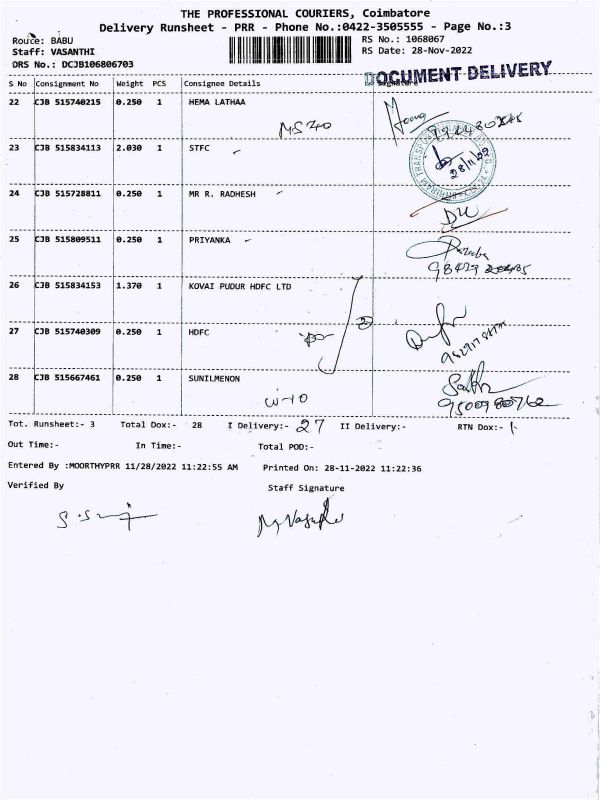 THE PROFESSIONAL COURIERS, Coimbatore
Delivery Runsheet - PRR - Phone No.:0422-3505555 - Page No.:3
Route: BABU
RS No.: 1068067
Staff: VASANTHI
RS Date: 28-Nov-2022
DRS No.: DCJB106806703
DOCUMENT DELIVERY
S No Consignment No Weight PCS Consignee Details Signature
22 CJB 515740215 0.250 1 HEMA LATHAA
23 CJB 515834113 2.030 1 STFC
28/11/22
24 CJB 515728811 0.250 1 MR R. RADHESH
25 CJB 515809511 0.250 1 PRIYANKA
26 CJB 515834153 1.370 1 KOVAI PUDUR HDFC LTD
27 CJB 515740309 0.250 1 HDFC
28 CJB 515667461 0.250 1 SUNILMENON
W-10
9500980762
Tot. Runsheet:- 3 Total Dox:- 28 I Delivery:- 27 II Delivery:- RTN Dox:- 1
Out Time:- In Time:- Total POD:-
Entered By :MOORTHYPRR 11/28/2022 11:22:55 AM Printed On: 28-11-2022 11:22:36
Verified By Staff Signature